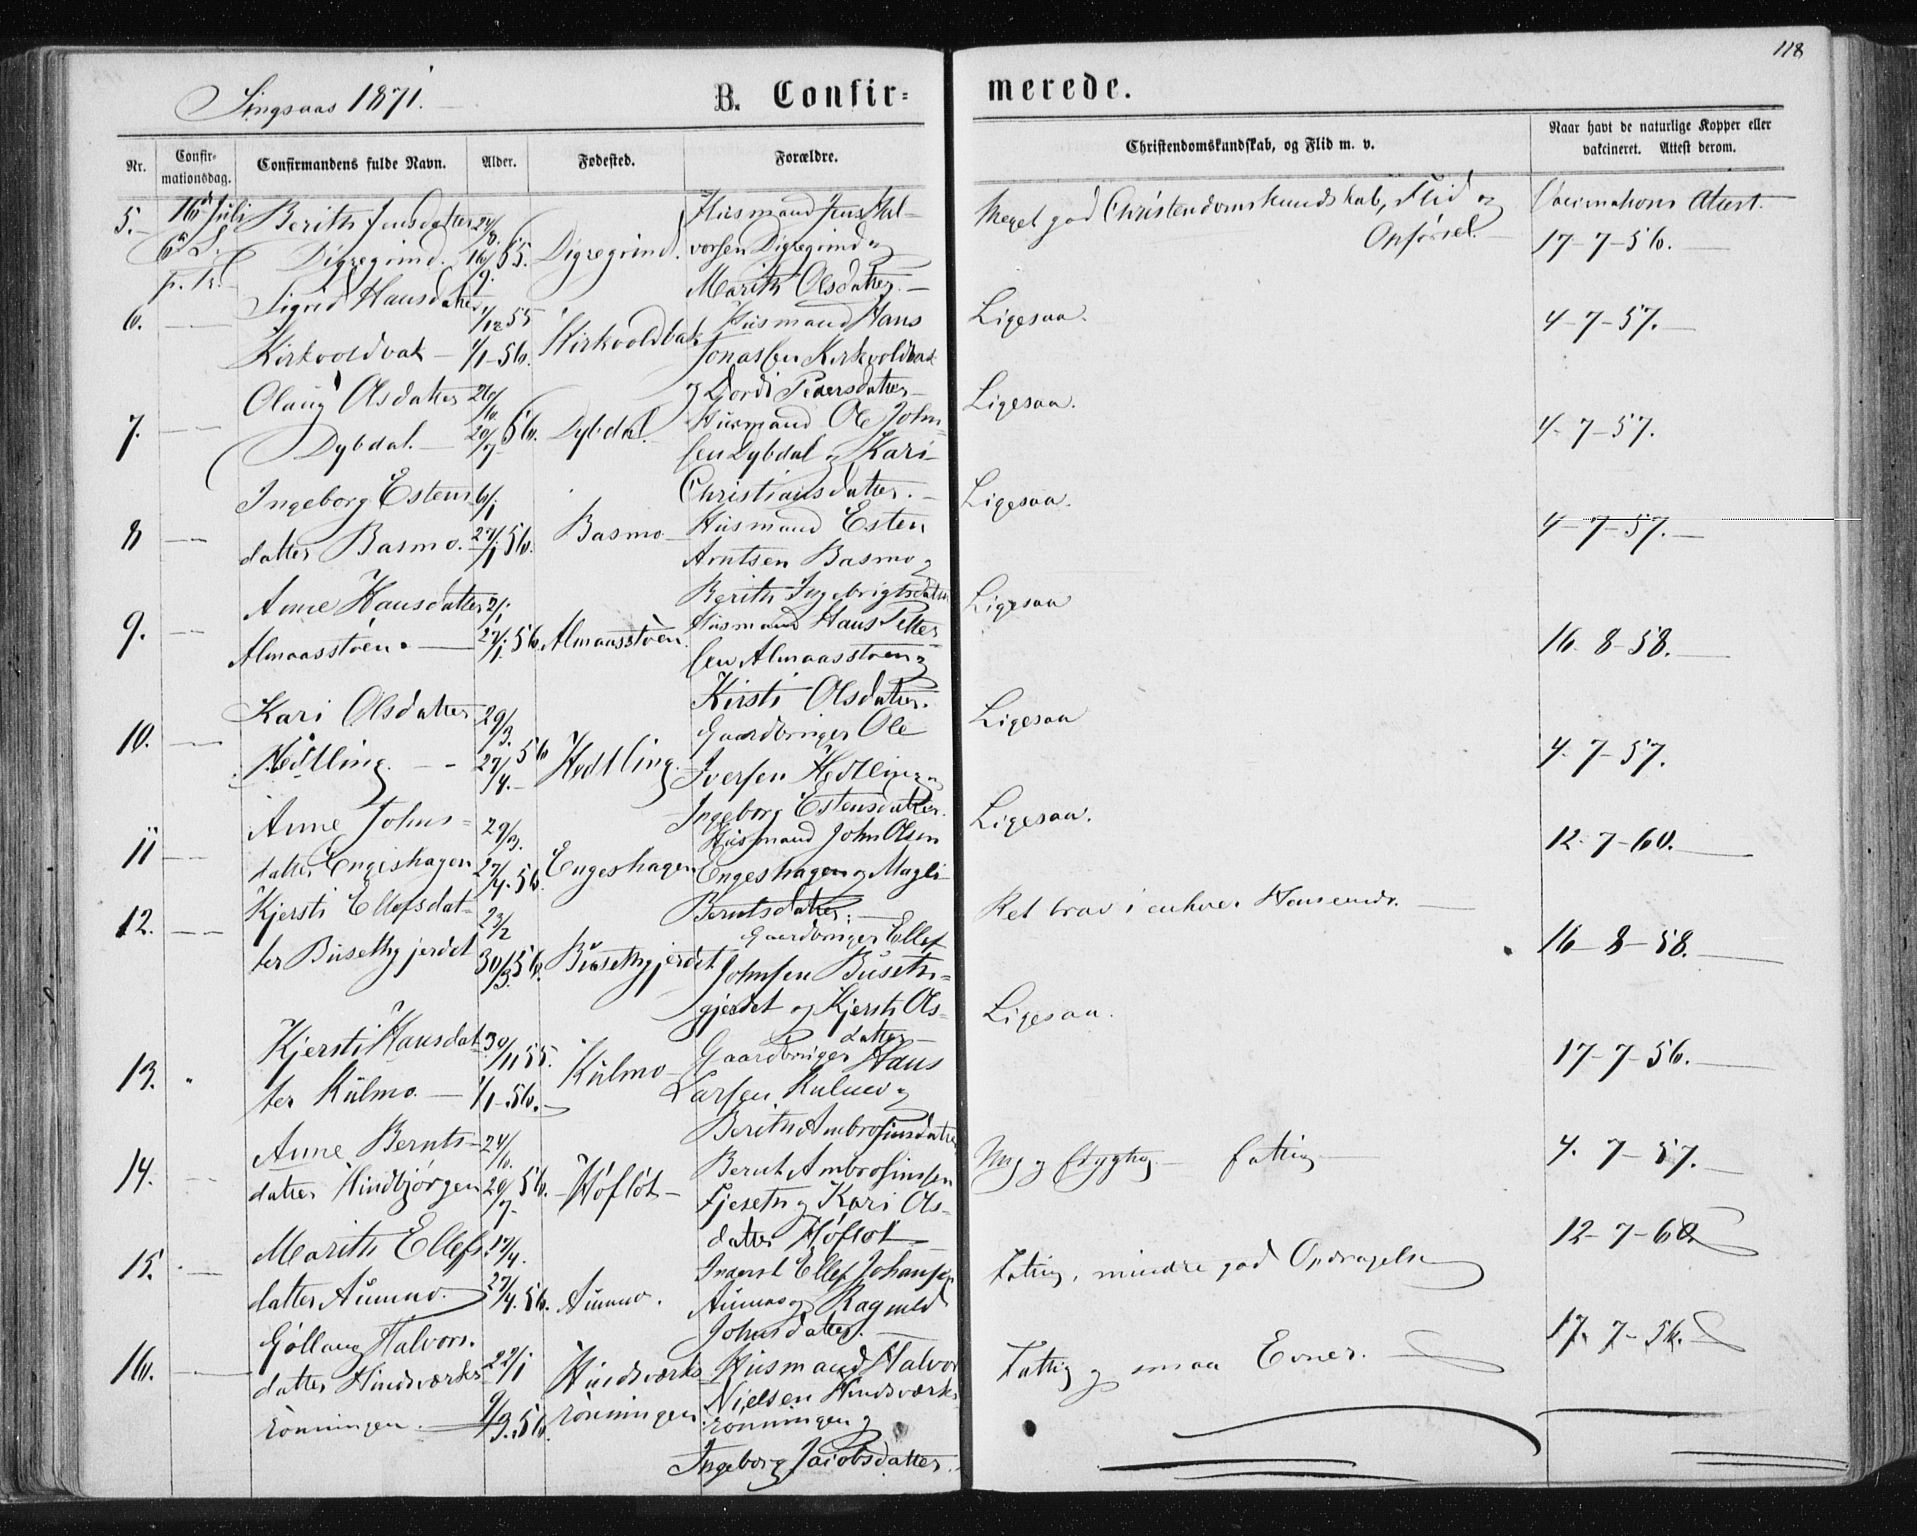 118
Singsaas 1871.
B. Confir-
merede.
Nr.
Confir-
mationsdag.
Confirmandens fulde Navn.
Alder.
Fødested.
Forældre.
Christendomskundskab, og Flid m. v.
Naar havt de naturlige Kopper eller
vakcineret. Attest derom.
5. 16de Juli
6. S.
p. Tr.
Berith Jensdatter
Digregrind.
24/8.
16/9. 55.
Digregrind.
Husmand Jens Hal-
vorsen Digregrind og
Marith Olsdatter.
Meget god Christendomskundskab, Flid og
Opførsel.
Vaccinations Attest.
17-7-56.
6.
Sigrid Hansdatter
Kirkvoldvak
/12 55
1/1-56.
Kirkvoldvak
Husmand Hans
Jonassen Kirkvoldvak
og Gordi Pedersdatter
Ligesaa.
4-7-57.
7.
Olaug Olsdatter
Dybdal.
20/7 56.
Dybdal.
Husmand Ole John-
sen Dybdal og Kari
Christiansdatter.
Ligesaa.
4-7-57.
8
Ingeborg Estens
datter Basmo.
6/1
27/1 56.
Basmo
Husmand Esten
Arntsen Basmo og
Berith Ingebrigtsdatter
Ligesaa.
4-7-57.
9.
Anne Hansdatter
Almaasstøen.
2/1
27/1. 56.
Almaasstøen.
Husmand Hans Petter
sen Almaasstøen og
Kirsti Olsdatter.
Ligesaa
16-8-58.
10.
Kari Olsdatter
Hedtling.
29/3.
27/4. 56
Hedtling.
Gaardbruger Ole
Iversen Hedtling og
Ingeborg Estensdatter.
Ligesaa
4-7-57.
11
Anne Johns-
datter Engeshagen
29/3.
27/4. 56.
Engeshagen
Husmand John Olsen
Engeshagen og Magli
Berntsdatter.
Ligesaa.
12-7-60.
12.
Kjersti Ellefsdat-
ter Busethgjerdet
23/2
30/3 56.
Busethgjerdet
Gaardbruger Ellef
Johnsen Buseth-
gjerdet og Kjersti Ols-
datter
Ret brav i enhver Henseende.
16-8-58.
13.
Kjersti Hansdat-
ter Kulmo.
30/11 55.
1/1-56.
Kulmo
Gaardbruger Hans
Larsen Kulmo og
Berith Ambrosiusdatter
Ligesaa.
17-7-56.
14.
Anne Bernts-
datter Hindbjørgen
20/7 56.
Høfløt
Bernt Ambrosiussen
Fjeseth og Kari Ols-
datter Høfløt
fattig
4. 7-57.
15.
Marith Ellefs
datter Aunmo.
17/4.
27/4. 56.
Aunmo.
Inderst Ellef Johansen
Aunmo og Ragnild
Johnsdatter.
Fattig, mindre god Opdragelse
12-7-60.
16.
Gollaug Halvors.
datter Hindsværks
rønningen.
22/1
9/3. 56.
Hindsværks
rønningen
Husmand Halvor
Nielsen Hindsværks
rønningen og
Ingeborg Jacobsdatter.
Fattig og smaa Evner.
17. 7-56.